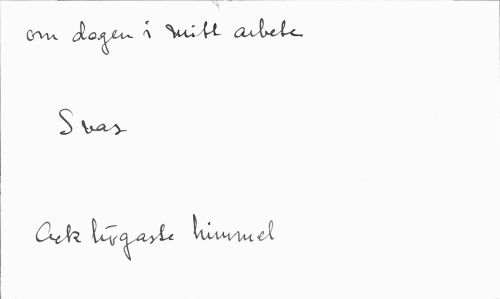 om dagen i mitt arbete
Svar
Ack högaste himmel